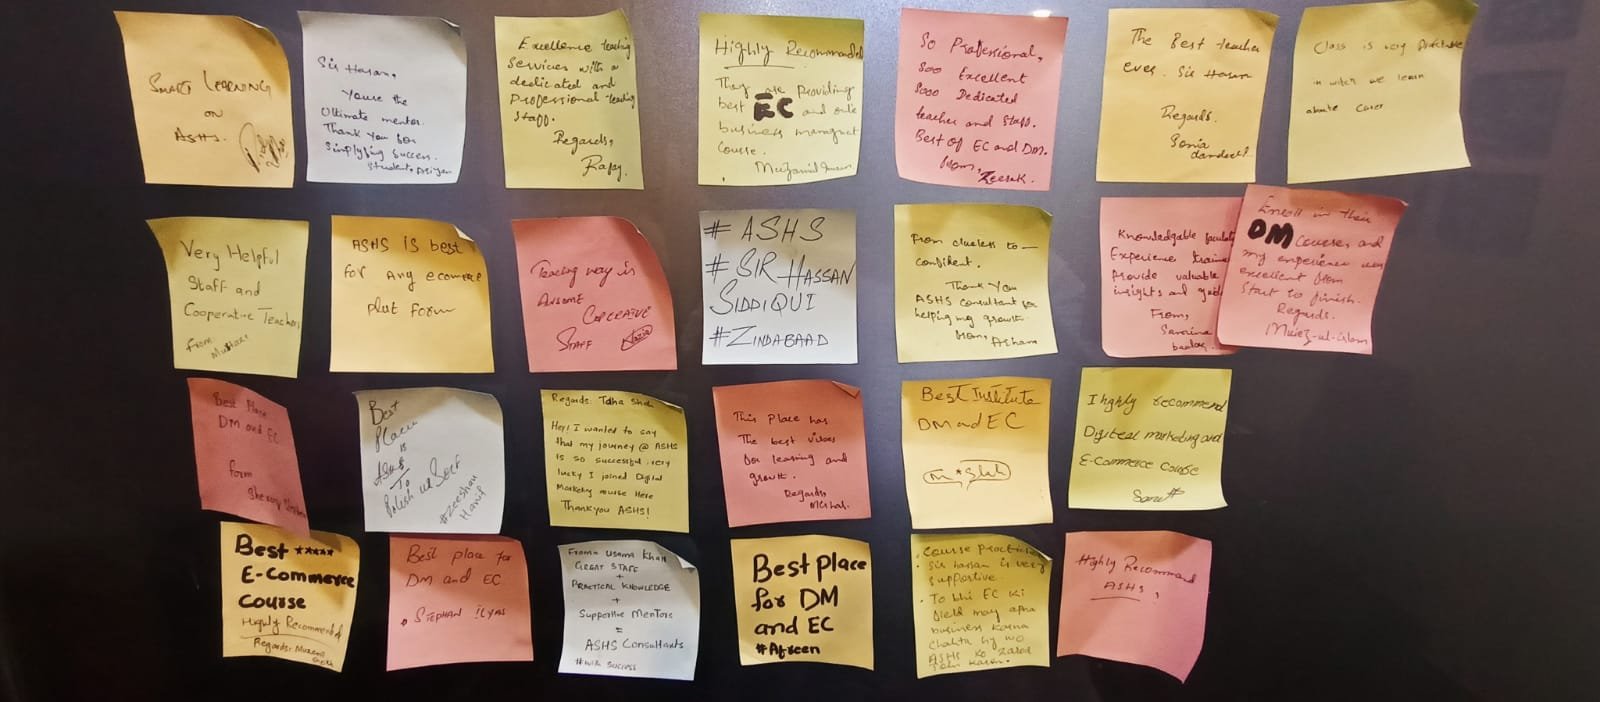 SMART LEARNING
ON
ASHS.
Sir Hasan,
You're the
Ultimate mentor.
Thank You for
Simplifying Success.
Student,
Excellence teaching
Services with a
dedicated and
Professional teaching
Staff.
Regards,
Highly Recommended
They are Providing
best EC and
business
Course.
So Professional,
Soo Excellent
Sooo Dedicated
teacher and Staff.
Best of EC and DM.
From,
Zeesh.
The Best teacher
ever. Sir Hasan
Regards.
Sonia
Class is very
in which we learn
Very Helpful
Staff and
Cooperative Teachers,
From
ASHS IS best
For Any
plat Form
Teaching way is
STAFF
# ASHS
# SIR HASSAN
SIDDIQUI
# ZINDABAAD
From clueless to —
confident.
Thank You
ASHS consultant for
helping my growth
From,
Knowledgable
Experience
Provide valuable
insights and
From,
Enroll in their
DM Courses and
my experience was
excellent from
Start to finish.
Regards.
Muiez-ul-islam
Best Place
DM and EC
form
Best
Place
is
ASHS
To
Polish ur Self
#Zeeshan
Hanif
Regards: Taha Shah
Hey! I wanted to say
that my journey @ ASHS
is so successful very
lucky I joined Digital
Marketing course Here
Thankyou ASHS!
This Place has
The best vibes
for learing and
growth.
Regards,
Best Institute
DM and EC
I highly recommend
Digiteal marketing and
E-Commerce Course
Best *****
E-Commerce
Course
Highly Recommended
Regards:
Best place for
DM and EC
STEPHAN ILYAS
From Usama Khan
GREAT STAFF
+
PRACTICAL KNOWLEDGE
+
Supportive Mentors
=
ASHS Consultants
Success
Best Place
for DM
and EC
# Afreen
Course
Sir hassan is very
Supportive.
To bhi EC ki
field may apna
business karna
chahta hy wo
ASHS ko
Join karen.
Highly Recommend
ASHS,